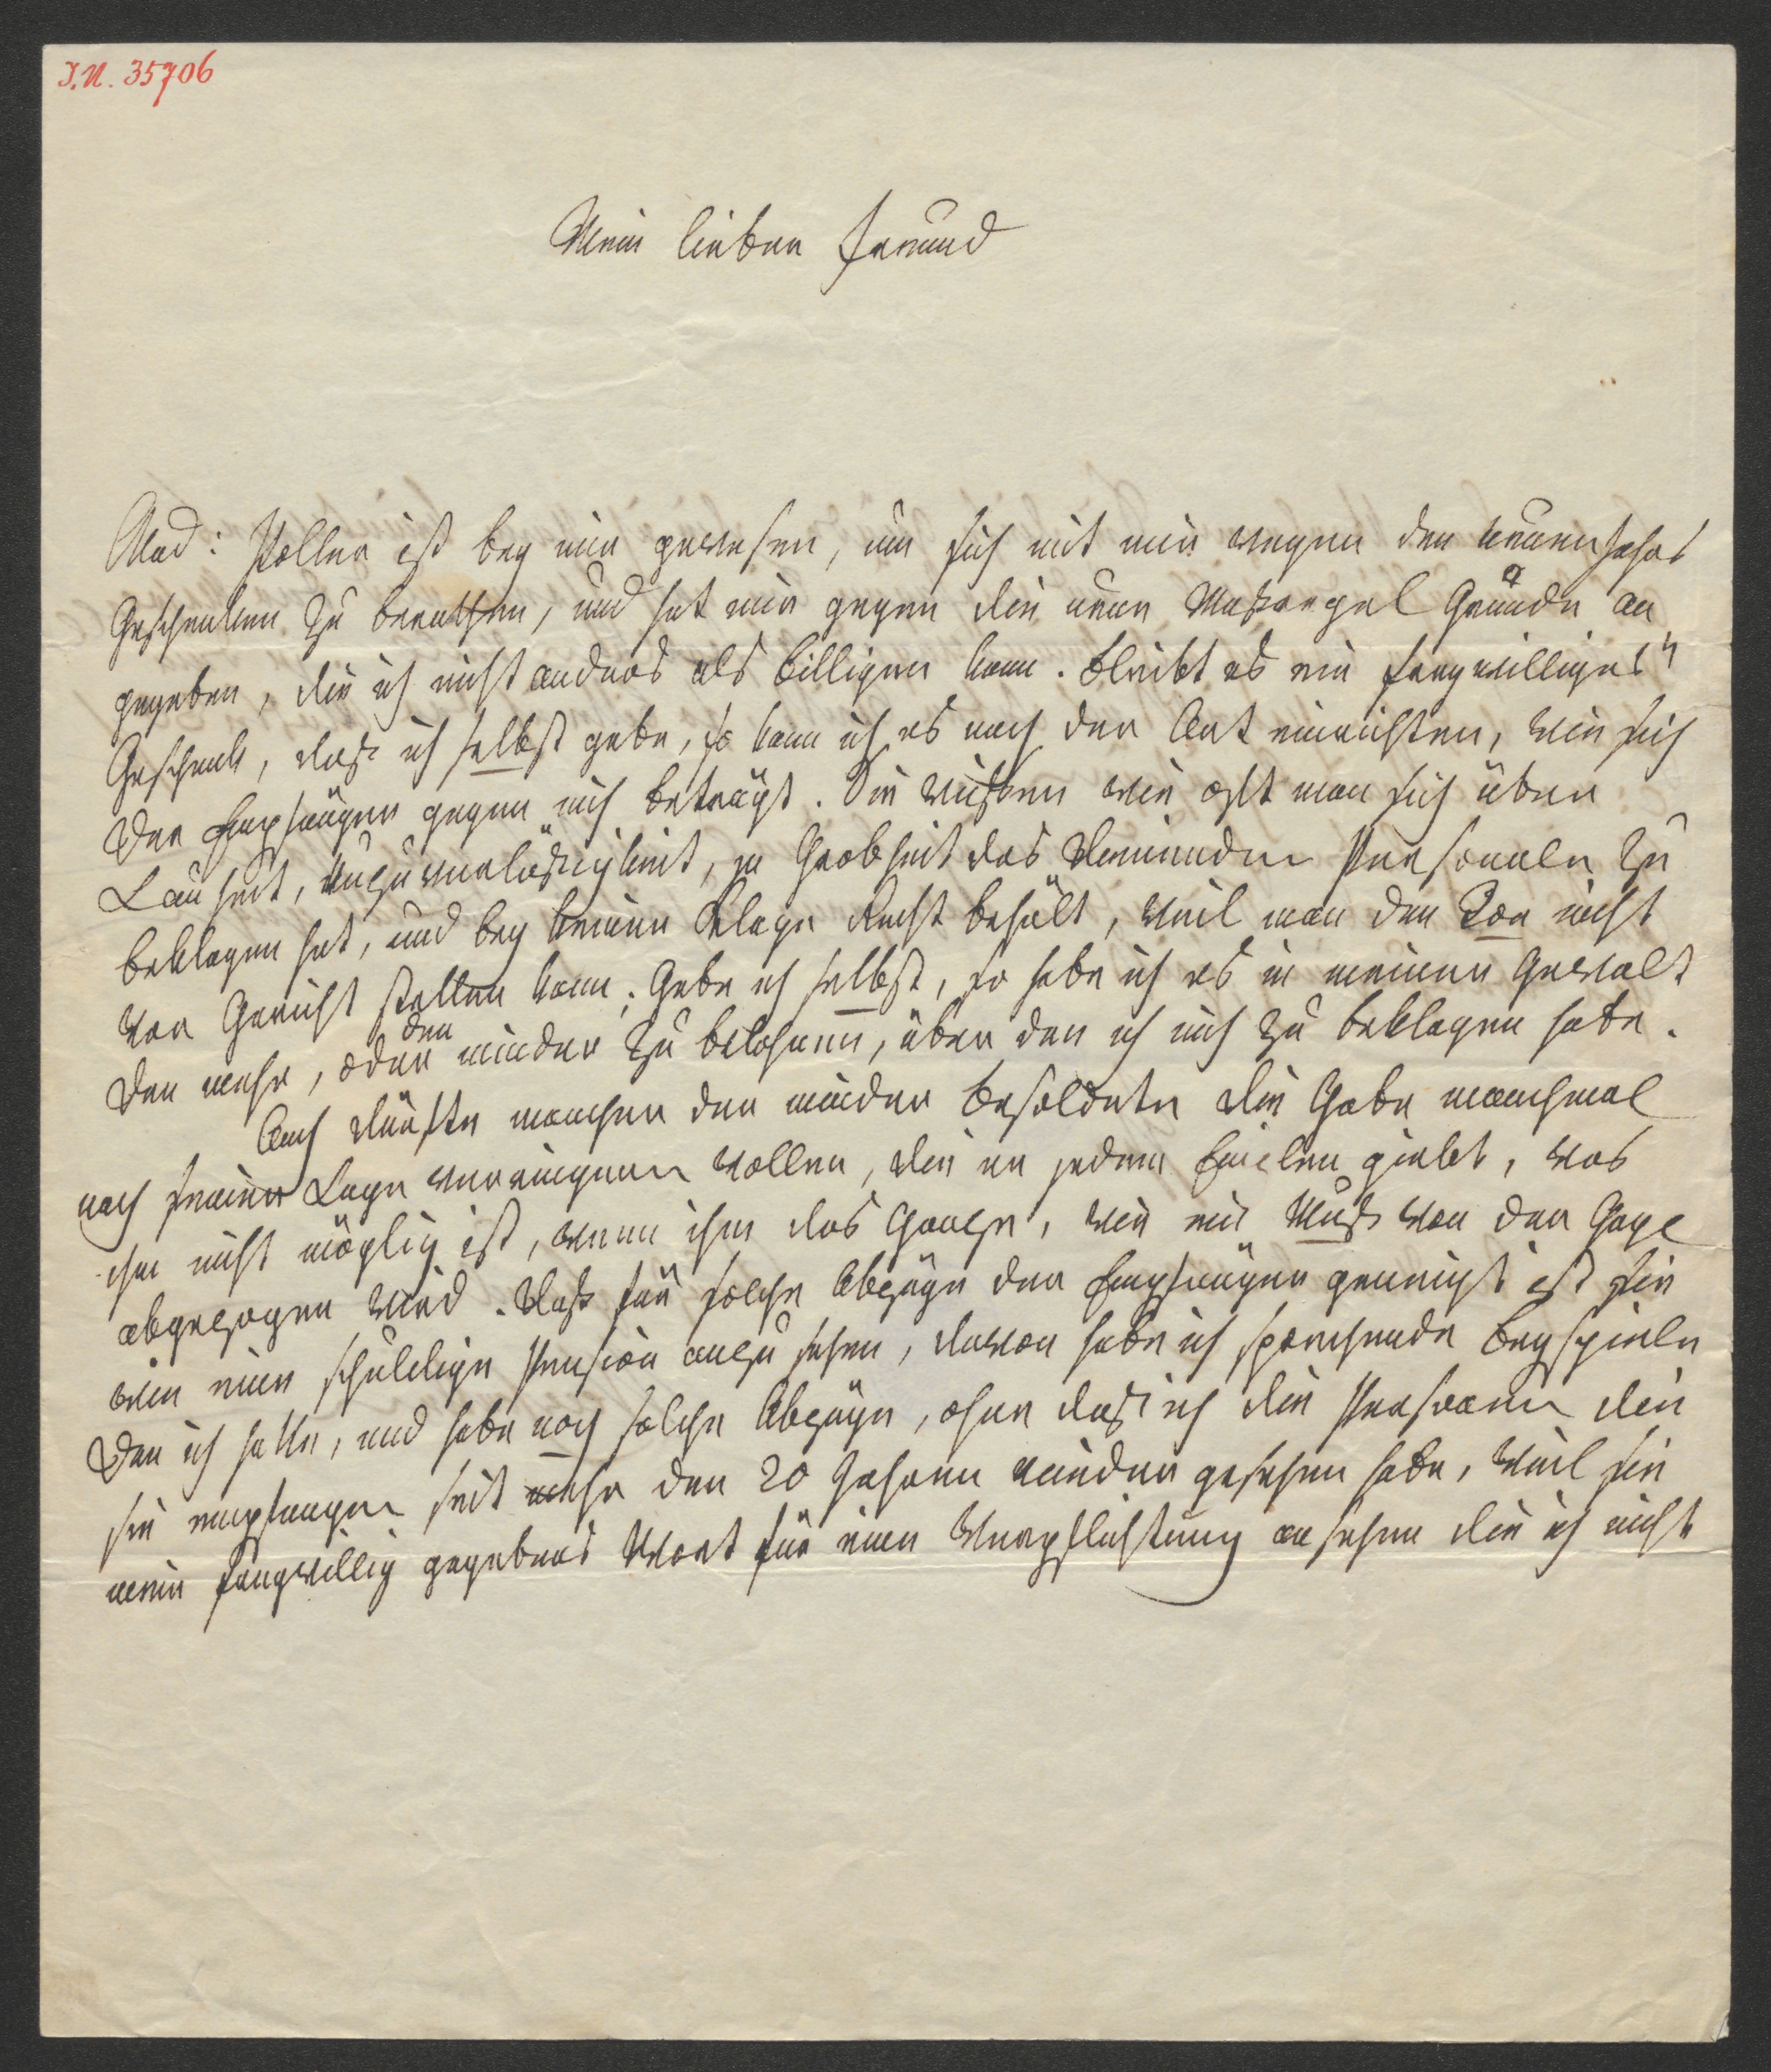 I.N. 35706
Mein lieber Freund
Mad: Koller ist bey mir gewesen, um sich mit mir wegen der neuenjahrs
Geschenken zu berathen, und hat mir gegen die neue Maßregel Gründe an
gegeben, die ich nicht anders als billigen kann. Bleibt es ein freywilliges
Geschenk, daß ich selbst gebe, so kann ich es nach der Art einrichten, wie sich
der Empfänger gegen mich beträgt. Sie wissen wie oft man sich über
Lauheit, Unzuverläßigkeit, ja Grobheit des dienenden Personale zu
beklagen hat, und bey keiner Klage Recht behält, weil man den Ton nicht
vor Gericht stellen kann; Gebe ich selbst, so habe ich es in meiner Gewalt
den mehr, oder den minder zu belohnen, über den ich mich zu beklagen habe.
Auch dürfte mancher der minder besoldete die Gabe manchmal
nach seiner Lage verringern wollen, die er jedem Einzlen giebt, was
ihm nicht möglig ist, wenn ihm das Ganze, wie ein Muß von der Gage
abgezogen wird. Daß für solche Abzüge der Empfänger geneigt ist sie
wie eine schuldige Pension anzusehen, davon habe ich sprechende Beyspiele
den ich hatte, und habe noch solche Abzüge, ohne daß ich die Person die
sie empfangen seit mehr den 20 Jahren wieder gesehen habe, weil sie
mein freywillig gegebnes Wort für eine Verpflichtung ansehen die ich nicht